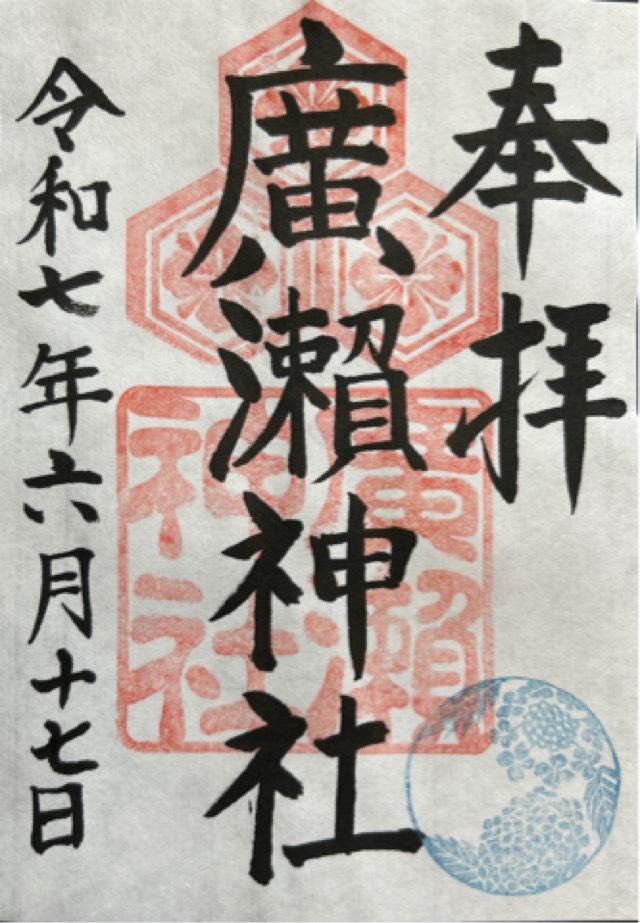 奉拝
廣瀬神社
令和七年六月十七日
廣瀬神社